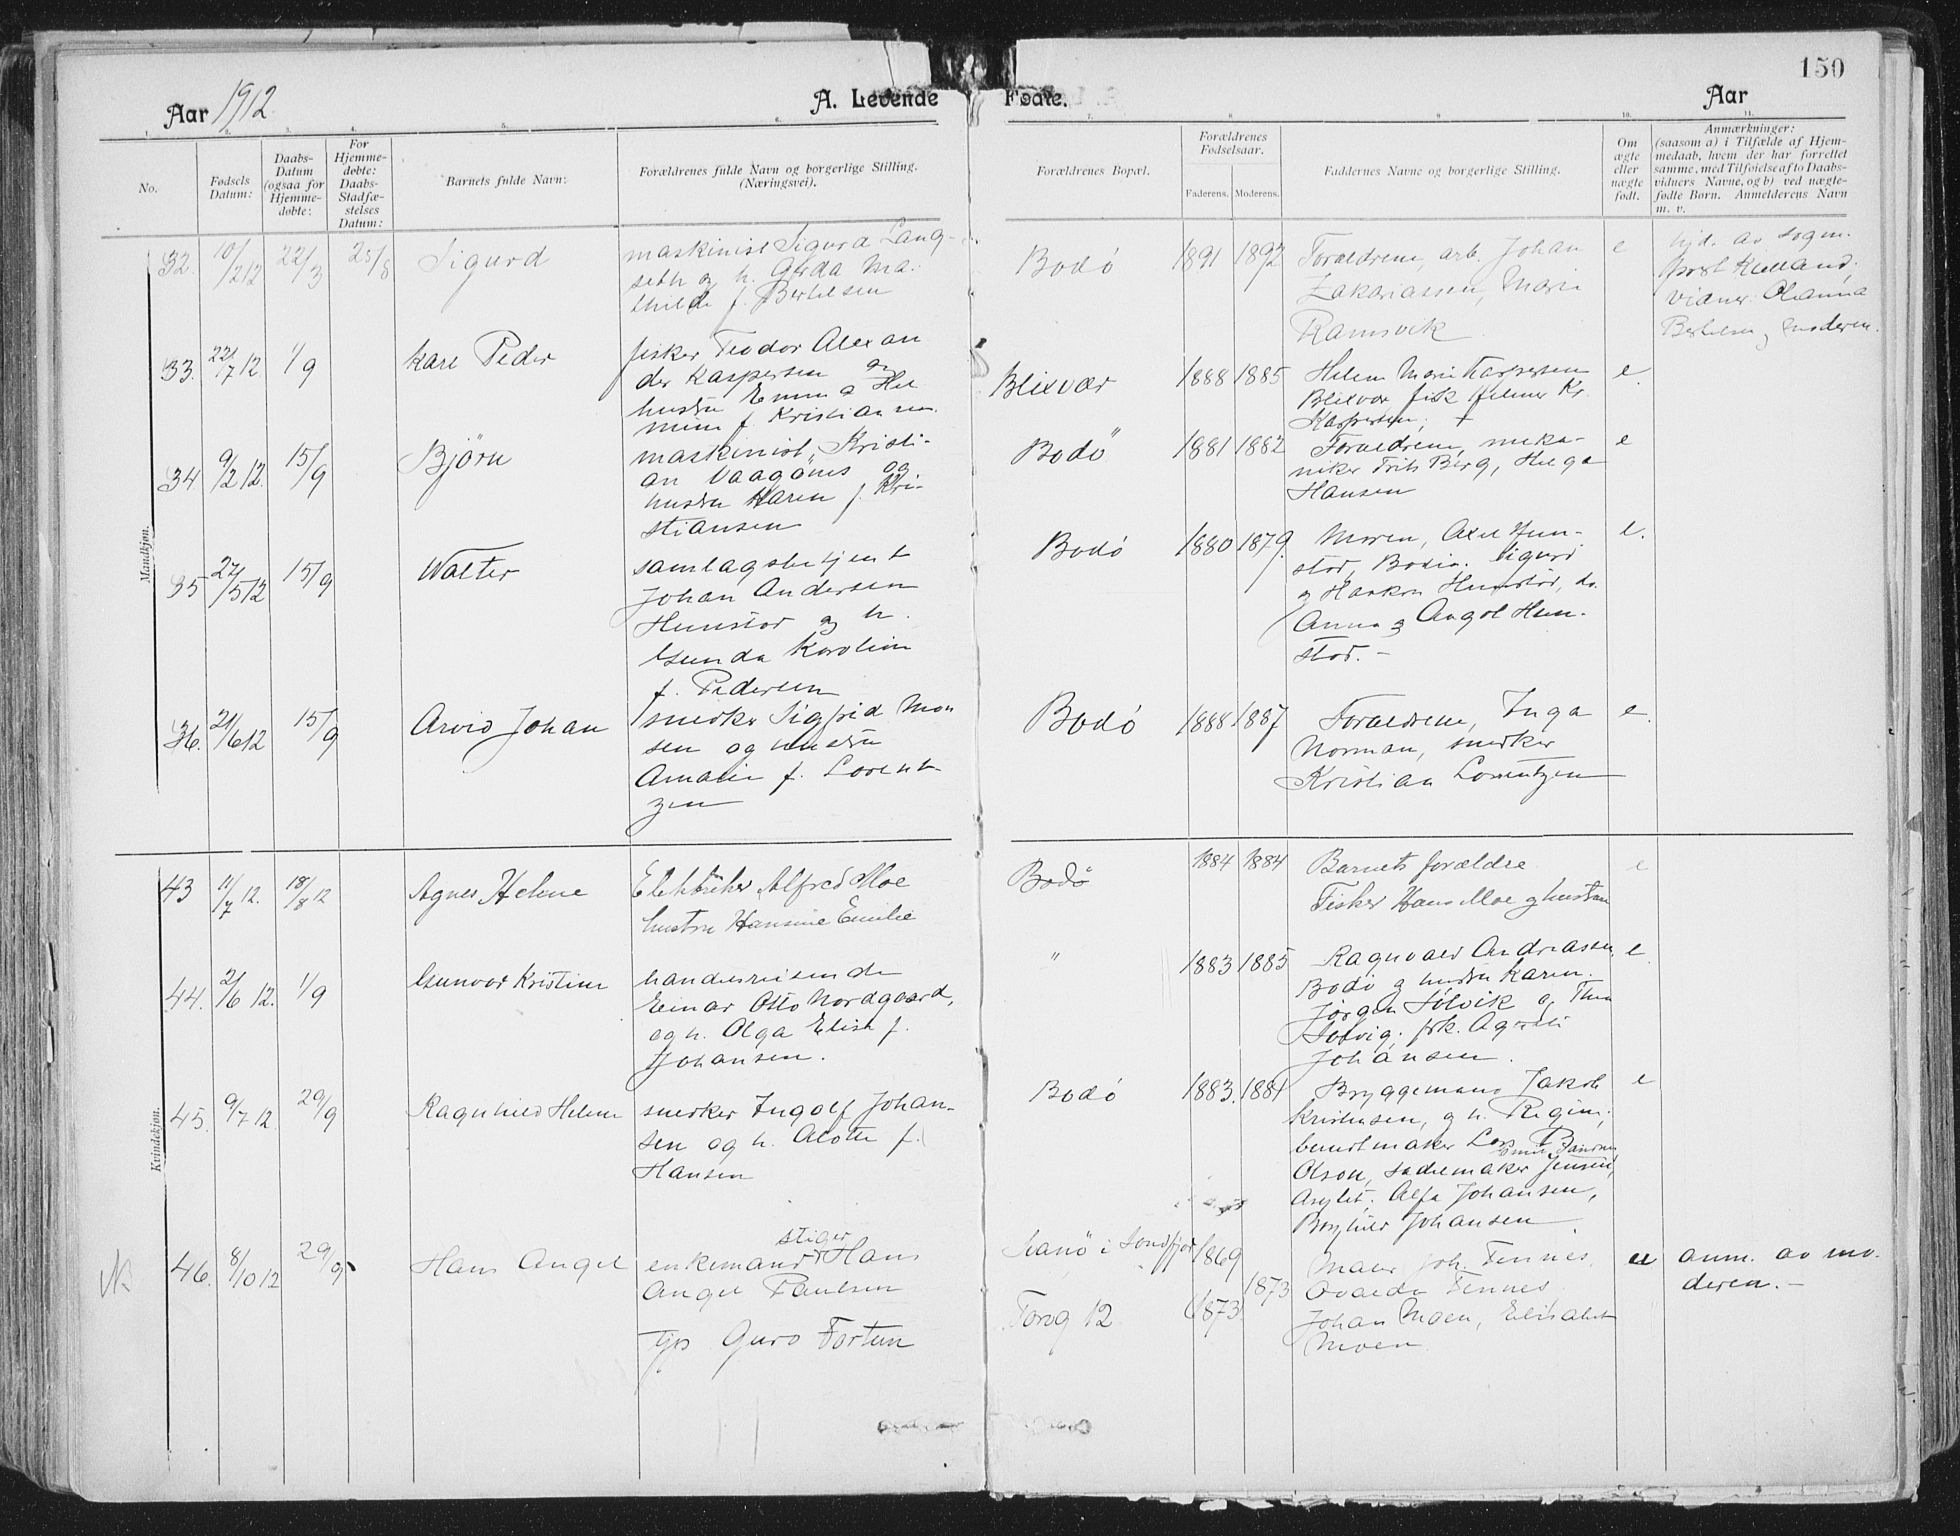 150
Aar 1912.
A. Levende
Fødte.
Aar
1. 2. 3. 4. 5. 6. 7. 8. 9. 10. 11.
No.
Fødsels Datum:
Daabs-Datum (ogsaa for Hjemmedøbte:
For Hjemmedøbte: Daabs-Stadfæstelses Datum:
Barnets fulde Navn:
Forældrenes fulde Navn og borgerlige Stilling.
(Næringsvei).
Forældrenes Bopæl.
Forældrenes Fødselsaar.
Faderens. Moderens.
Faddernes Navne og borgerlige Stilling.
Om ægte eller uægte født.
Anmærkninger:
(saasom a) i Tilfælde af Hjemmedaab, hvem der har forrettet samme, med Tilføielse af to Daabsvidners Navne, og b) ved uægtefødte Børn. Anmelderens Navn m. v.
Mandkjøn.
32. 10/2 12 22/3 25/8 Sigurd
maskinist Sigurd Lang-
seth og h. Gerda Ma-
thilde f. Bertelsen
Bodø 1891 1892
Foraldrene, arb. Johan
Zakariassen, Marie
Ramsvik
e
hjd. av sogn.
prest Kielland;
vidner: Oleanna
Bertelsen og moderen.
33. 22/7 12. 1/9 Kare Peder
fisker Teodor Alexan
der Kaspersen og
hustru Emma Hel
mine f. Kristiansen
Blixvær 1888 1885
Helene Marie Kaspersen
Blixvær fisk Helmer Kr.
Kaspersen; +
e.
34 9/2 12. 15/9 Bjørn
maskinist, Kristi-
an Vaagønes og
hustru Karen f. Kri-
stiansen
Bodø 1881 1882
Foraldrene, meka-
niker Frits Berg, Helga
Hansen
e
35 27/5 12 15/9 Walter
samlagsbetjent
Johan Andersen
Hunstor og h.
Gunda Karoline
f. Pedersen
Bodø 1880 1879.
Moren, Axel Hun-
stor, Bodin. Sigurd
og Haakon Hunstor, do.
Anna og Angel Hun-
stor. -
e.
36. 21/6 12 15/9 Arvid Johan
snedker Sigfrid Mon
sen og hustru
Amalie f. Lorent-
zen
Bodø 1888 1887
Foraeldrene, Inga
Norman, snedker
Kristian Lorentzen
e.
Kvindekjøn.
43 11/7 12. 18/8 12 Agnes Helene
Elektriker Alfred Moe
hustru Hansine Emilie
Bodø 1884 1884
Barnets forældre
Fisker Hans Moe og hustru
e
44. 2/6 12. 1/9 Gunvor Kristine
handelsreisende
Einar Otto Nordgaard,
og h. Olga Elise f.
Johansen.
" 1883 1885
Ragnvald Andreassen,
Bodø og hustru Karen.
Jørgen Sølvik og Thea
Solvig; frk. Agnete
Johansen.
e.
45. 9/7 12. 29/9 Ragnhild Helene
snedker Ingolf Johan-
sen og h. Alette f.
Hansen
Bodø 1883. 1881
Bryggemand Jakob
Kristensen, og h. Regine;
bundtmaker Lars
Olson, sadlemaker Jensen,
Asylet. Alfa Johansen,
Borghild Johansen
e
NB 46. 8/10 12 29/9 Hans Angel
enkemand stiger Hans
Angel Paulsen
tjp Guro Fortun
i Søndfjord 1869
Torvg 12 1873 1873
Maler Joh. Tennes,
Ovaldia Tennes
Johan Moen, Elisabet
Moen
u
anm. av mo-
deren. -